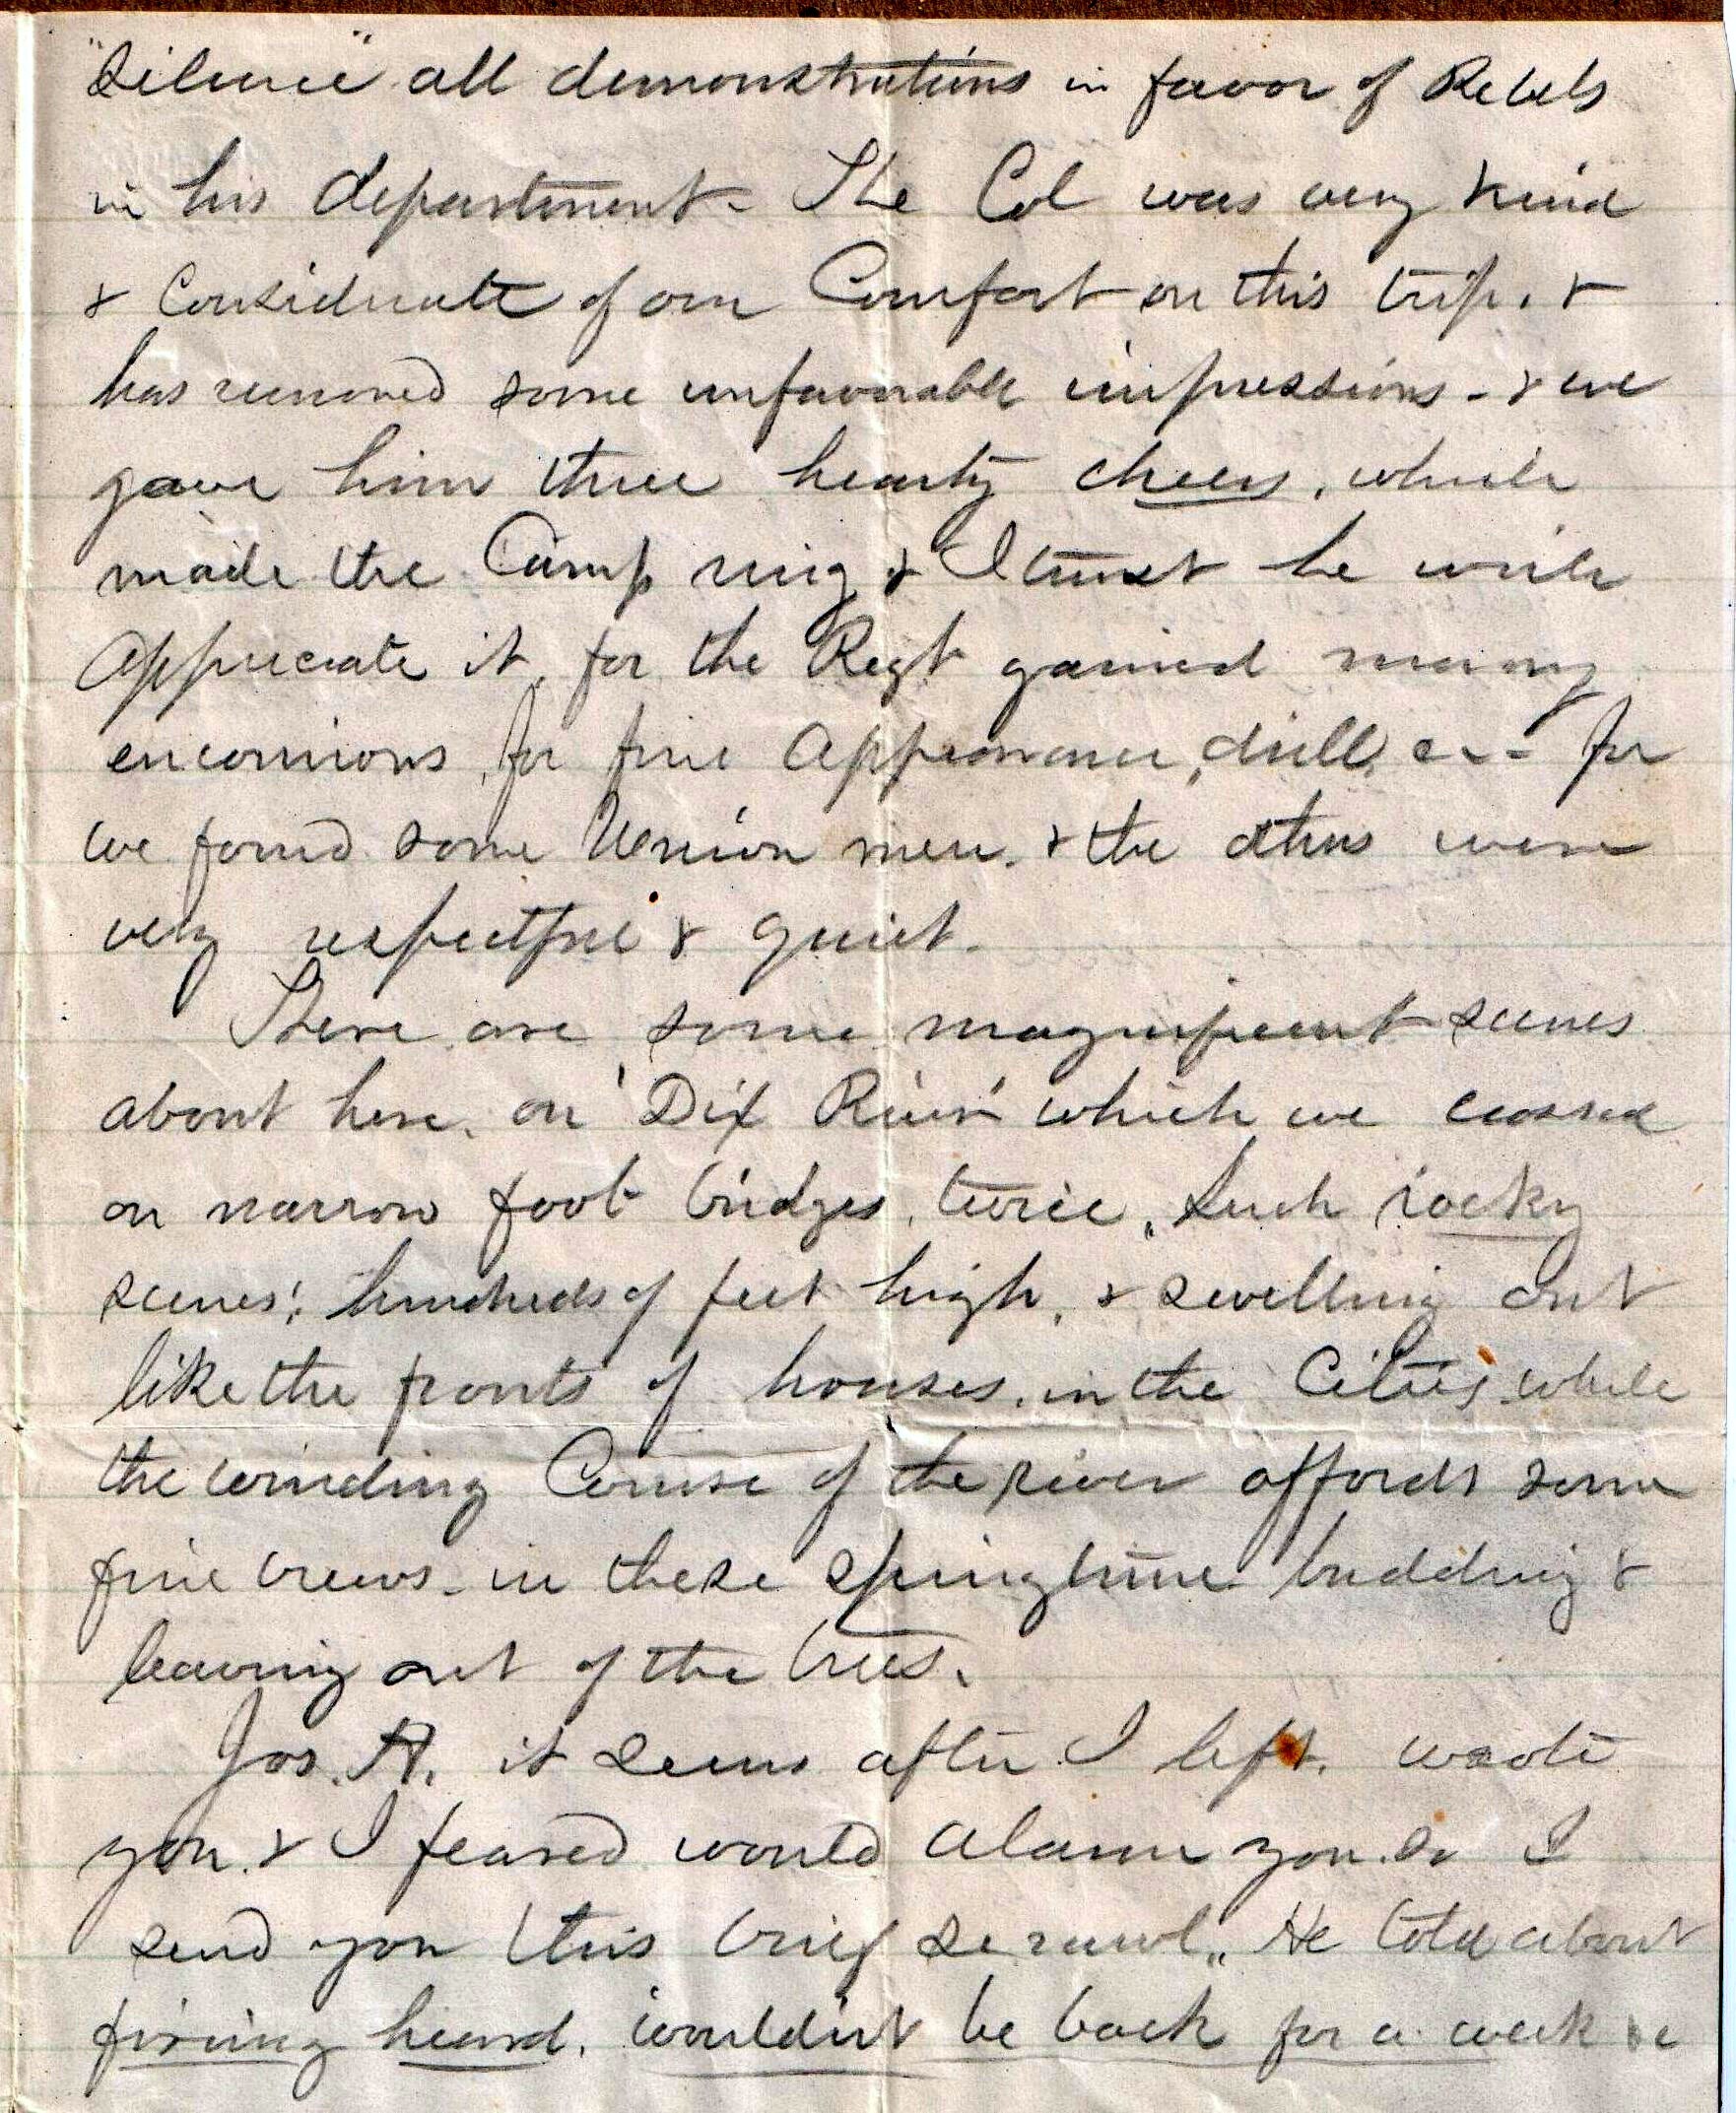 "Silence" all demonstrations in favor of Rebels
in his department - The Col was very kind
& Considerate of our Comfort on this trip. &
has removed some unfavorable impressions - & we
gave him three hearty cheers, which
made the Camp ring & I trust he will
appreciate it, for the Regt gained many
encomions, for fine appearance, drill, for
we found some Union men. & the others were
very respectful & quiet.
There are some magnificent scenes
about here, on "Dix River" which we crossed
on narrow foot bridges, twice, Such rocky
scenes; hundreds of feet high, & swelling out
like the fronts of houses, in the Cities, while
the winding Course of the river affords some
fine views - in these Springtime budding &
leaving out of the trees.
Jos. A. it seems after I left, wrote
you. & I feared would alarm you. So I
send you this brief scrawl. He told about
firing heard, wouldn't be back for a week